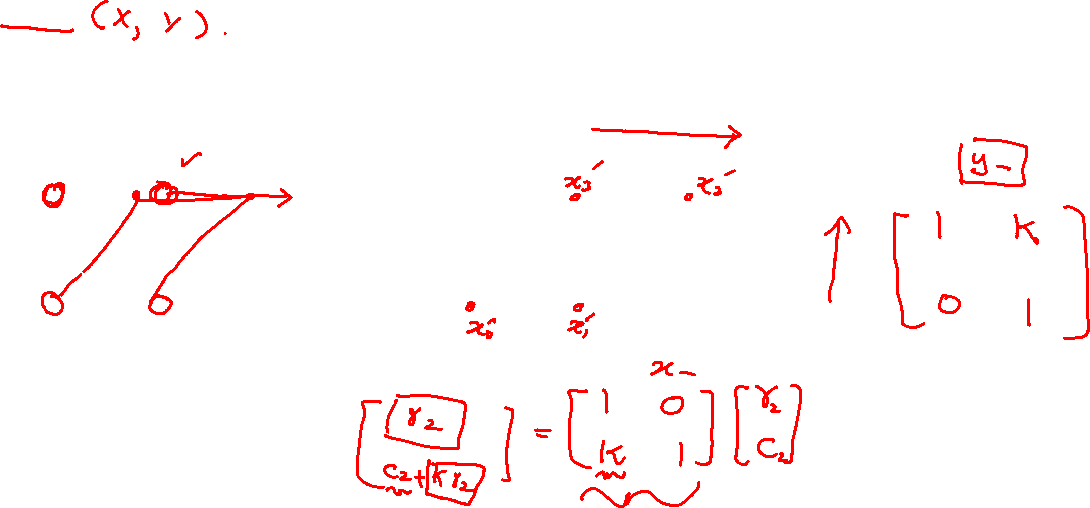 (x, y).
✓
x₃′ x₂′
y-
[1 K
0 1]
x₀′ x₁′
x-
[r₂
c₂+Kr₂] = [1 0
K 1] [r₂
c₂]